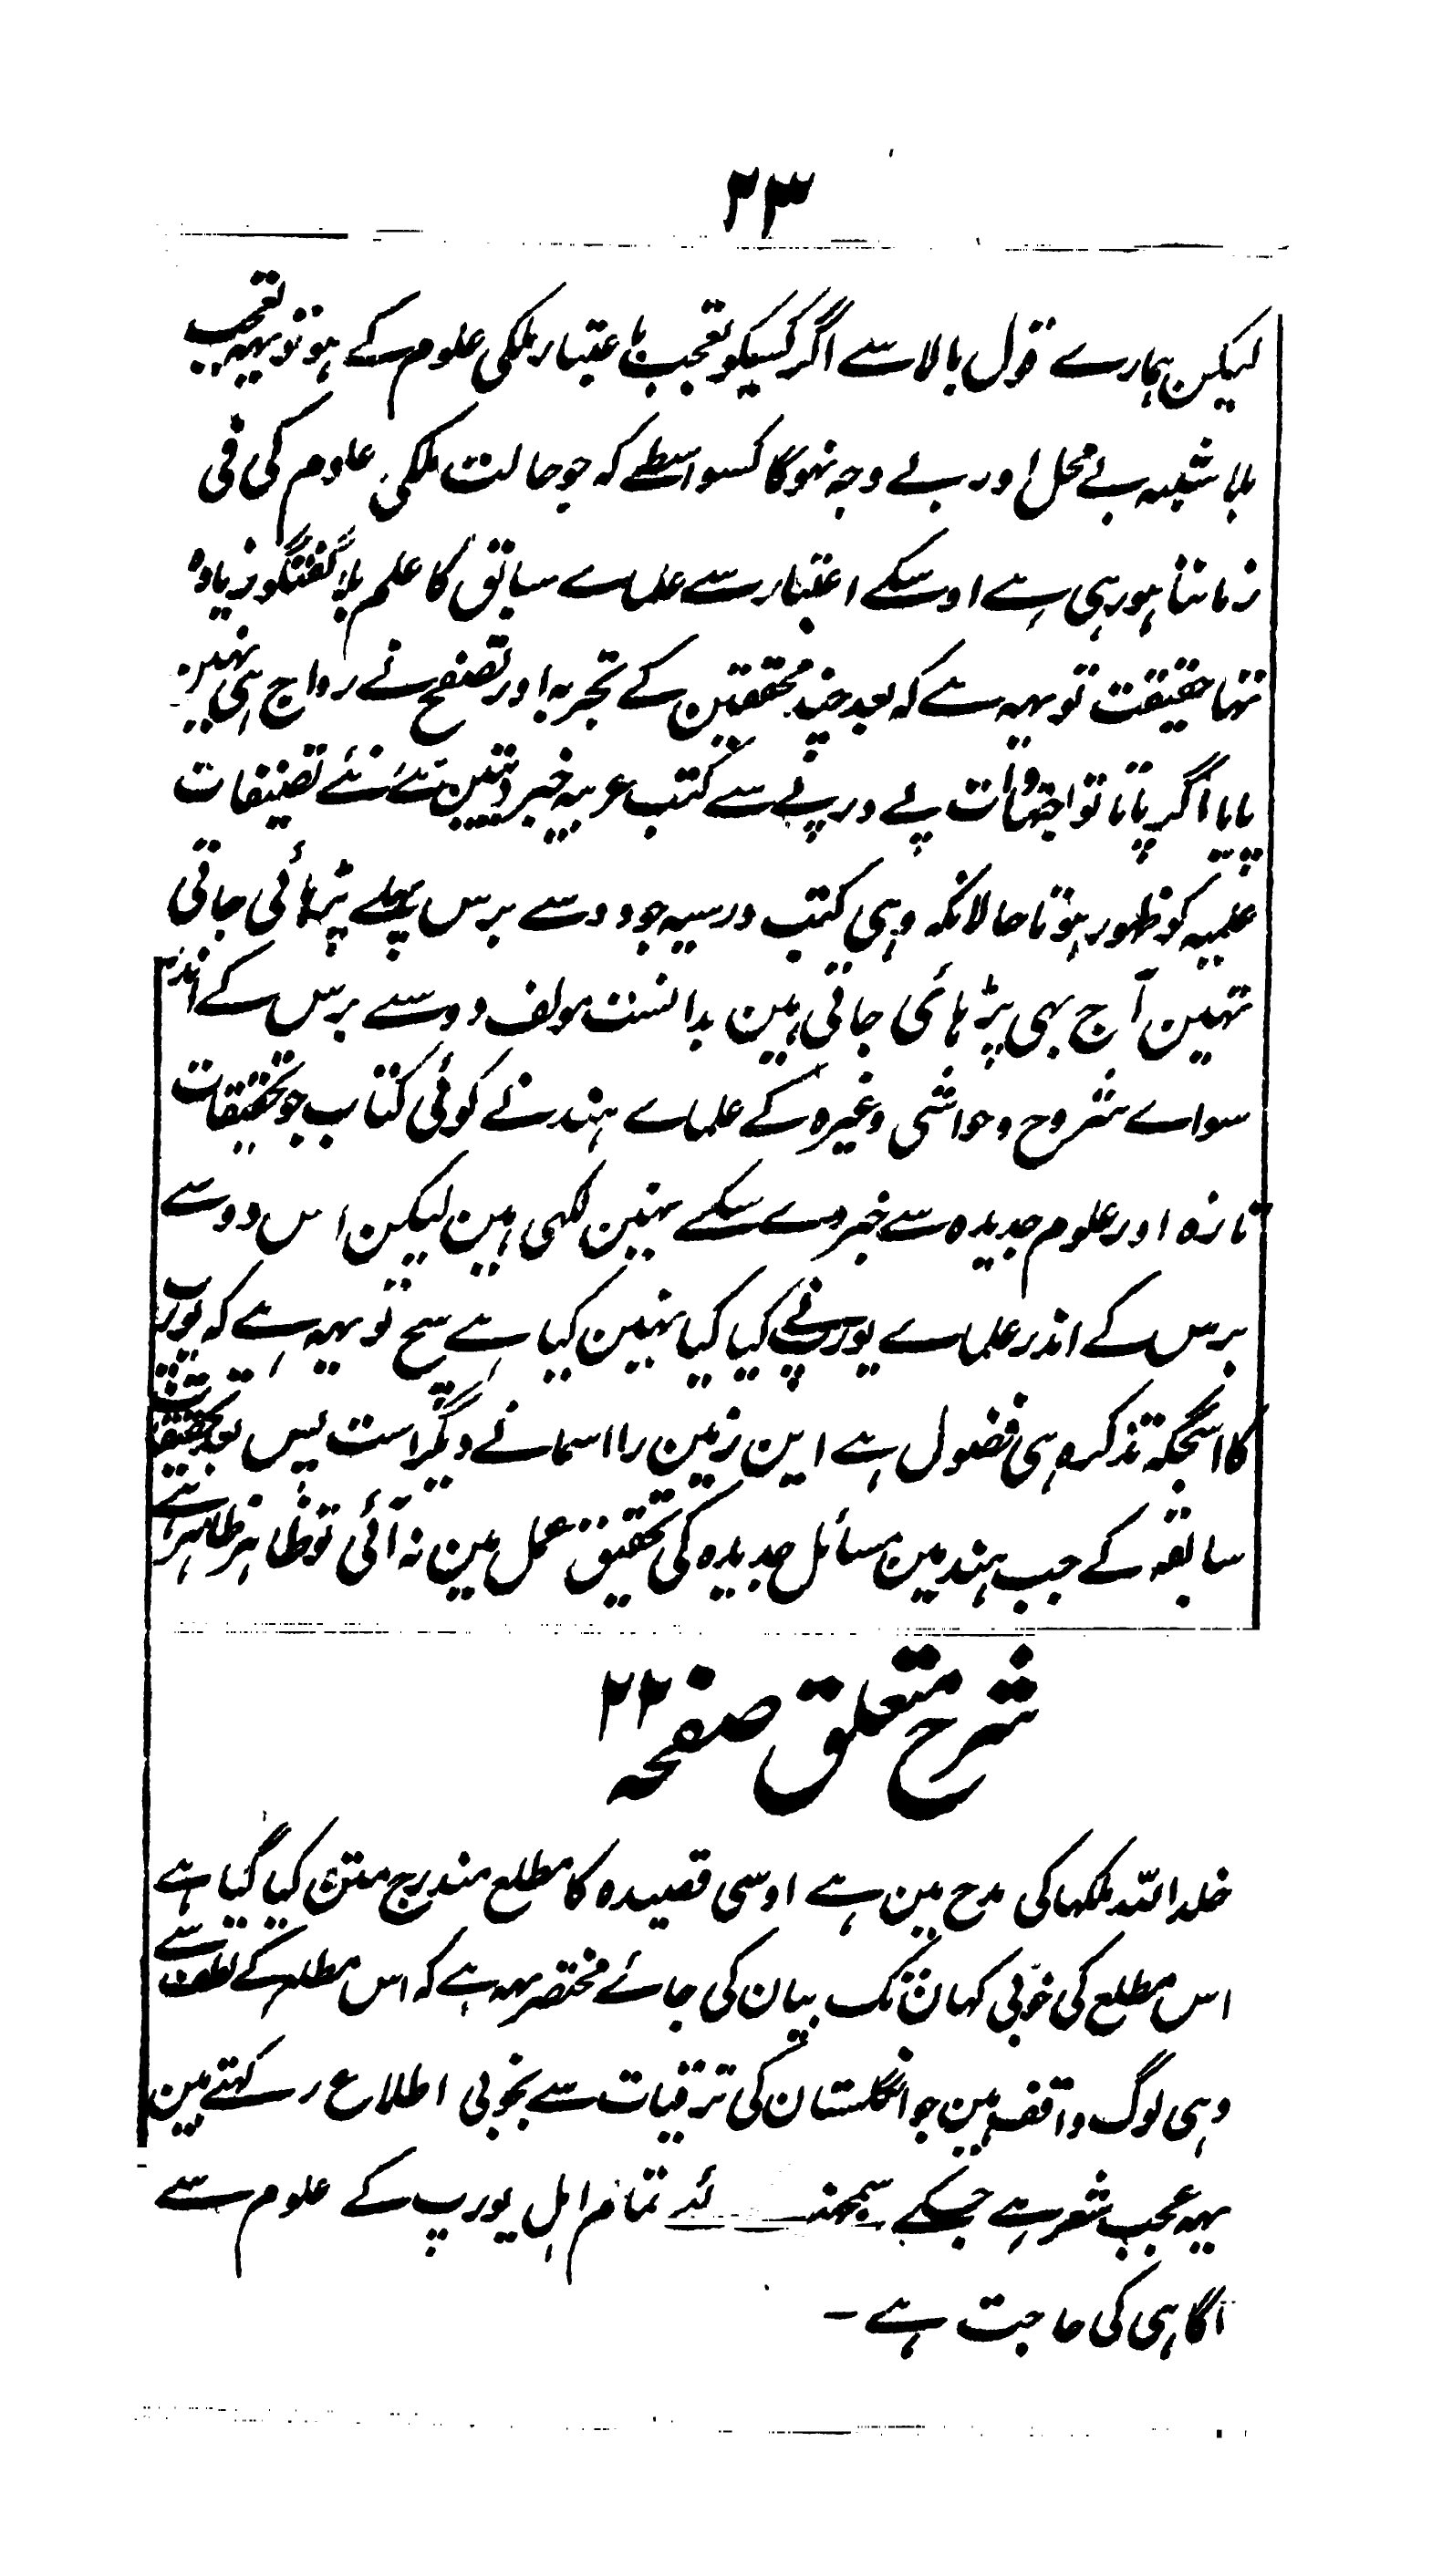 ۲۳
لیکن ہمارے قول بالا سے اگر کسیکو تعجب باعتبار ملکی علوم کے ہو تو یہہ تعجب
بلا شبہہ بے محل اور بے وجہ نہوگا کسواسطے کہ جو حالت ملکی علوم کی فی
زماننا ہو رہی ہے اوسکے اعتبار سے علماے سابق کا علم بلا گفتگو زیادہ
تھا حقیقت تو یہہ ہے کہ بعد چند محققین کے تجربہ اور تصفح نے رواج ہی نہین
پایا اگر پاتا تو اجتہادات پے در پے سے کتب عربیہ خبر دیتین نئے نئے تصنیفات
علمیہ کو ظہور ہوتا حالانکہ وہی کتب درسیہ جو دو سے برس پہلے پڑہائی جاتی
تہین آج بہی پڑہائی جاتی ہین بدانست مولف دو سے برس کے اندر
سواے شروح و حواشی وغیرہ کے علماے ہند نے کوئی کتاب جو تحقیقات
تازہ اور علوم جدیدہ سے خبر دے سکے نہین لکہی ہین لیکن اس دو سے
برس کے اندر علماے یورپ نے کیا کیا نہین کیا ہے سچ تو یہہ ہے کہ یورپ
کا اسجگہ تذکرہ ہی فضول ہے این زمین را اسمانے دیگر است پس بعد تحقیقات
سابقہ کے جب ہند مین مسائل جدیدہ کی تحقیق عمل مین نہ آئی تو ظاہر ظاہر ہے
شرح متعلق صفحہ ۲۲
خلد اللہ ملکہا کی مدح مین ہے اوسی قصیدہ کا مطلع مندرج متن کیا گیا ہے
اس مطلع کی خوبی کہان تک بیان کی جائے مختصر یہہ ہے کہ اس مطلع کے لطف سے
وہی لوگ واقف ہین جو انگلستان کی ترقیات سے بخوبی اطلاع رکہتے ہین
یہہ عجب شعر ہے جسکے سمجہنے لئے تمام اہل یورپ کے علوم سے
آگاہی کی حاجت ہے ـ